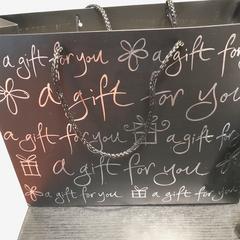 a gift for you a gift for
a gift for you
a gift for you a gift for
a gift for you
a gift for you a gift for you